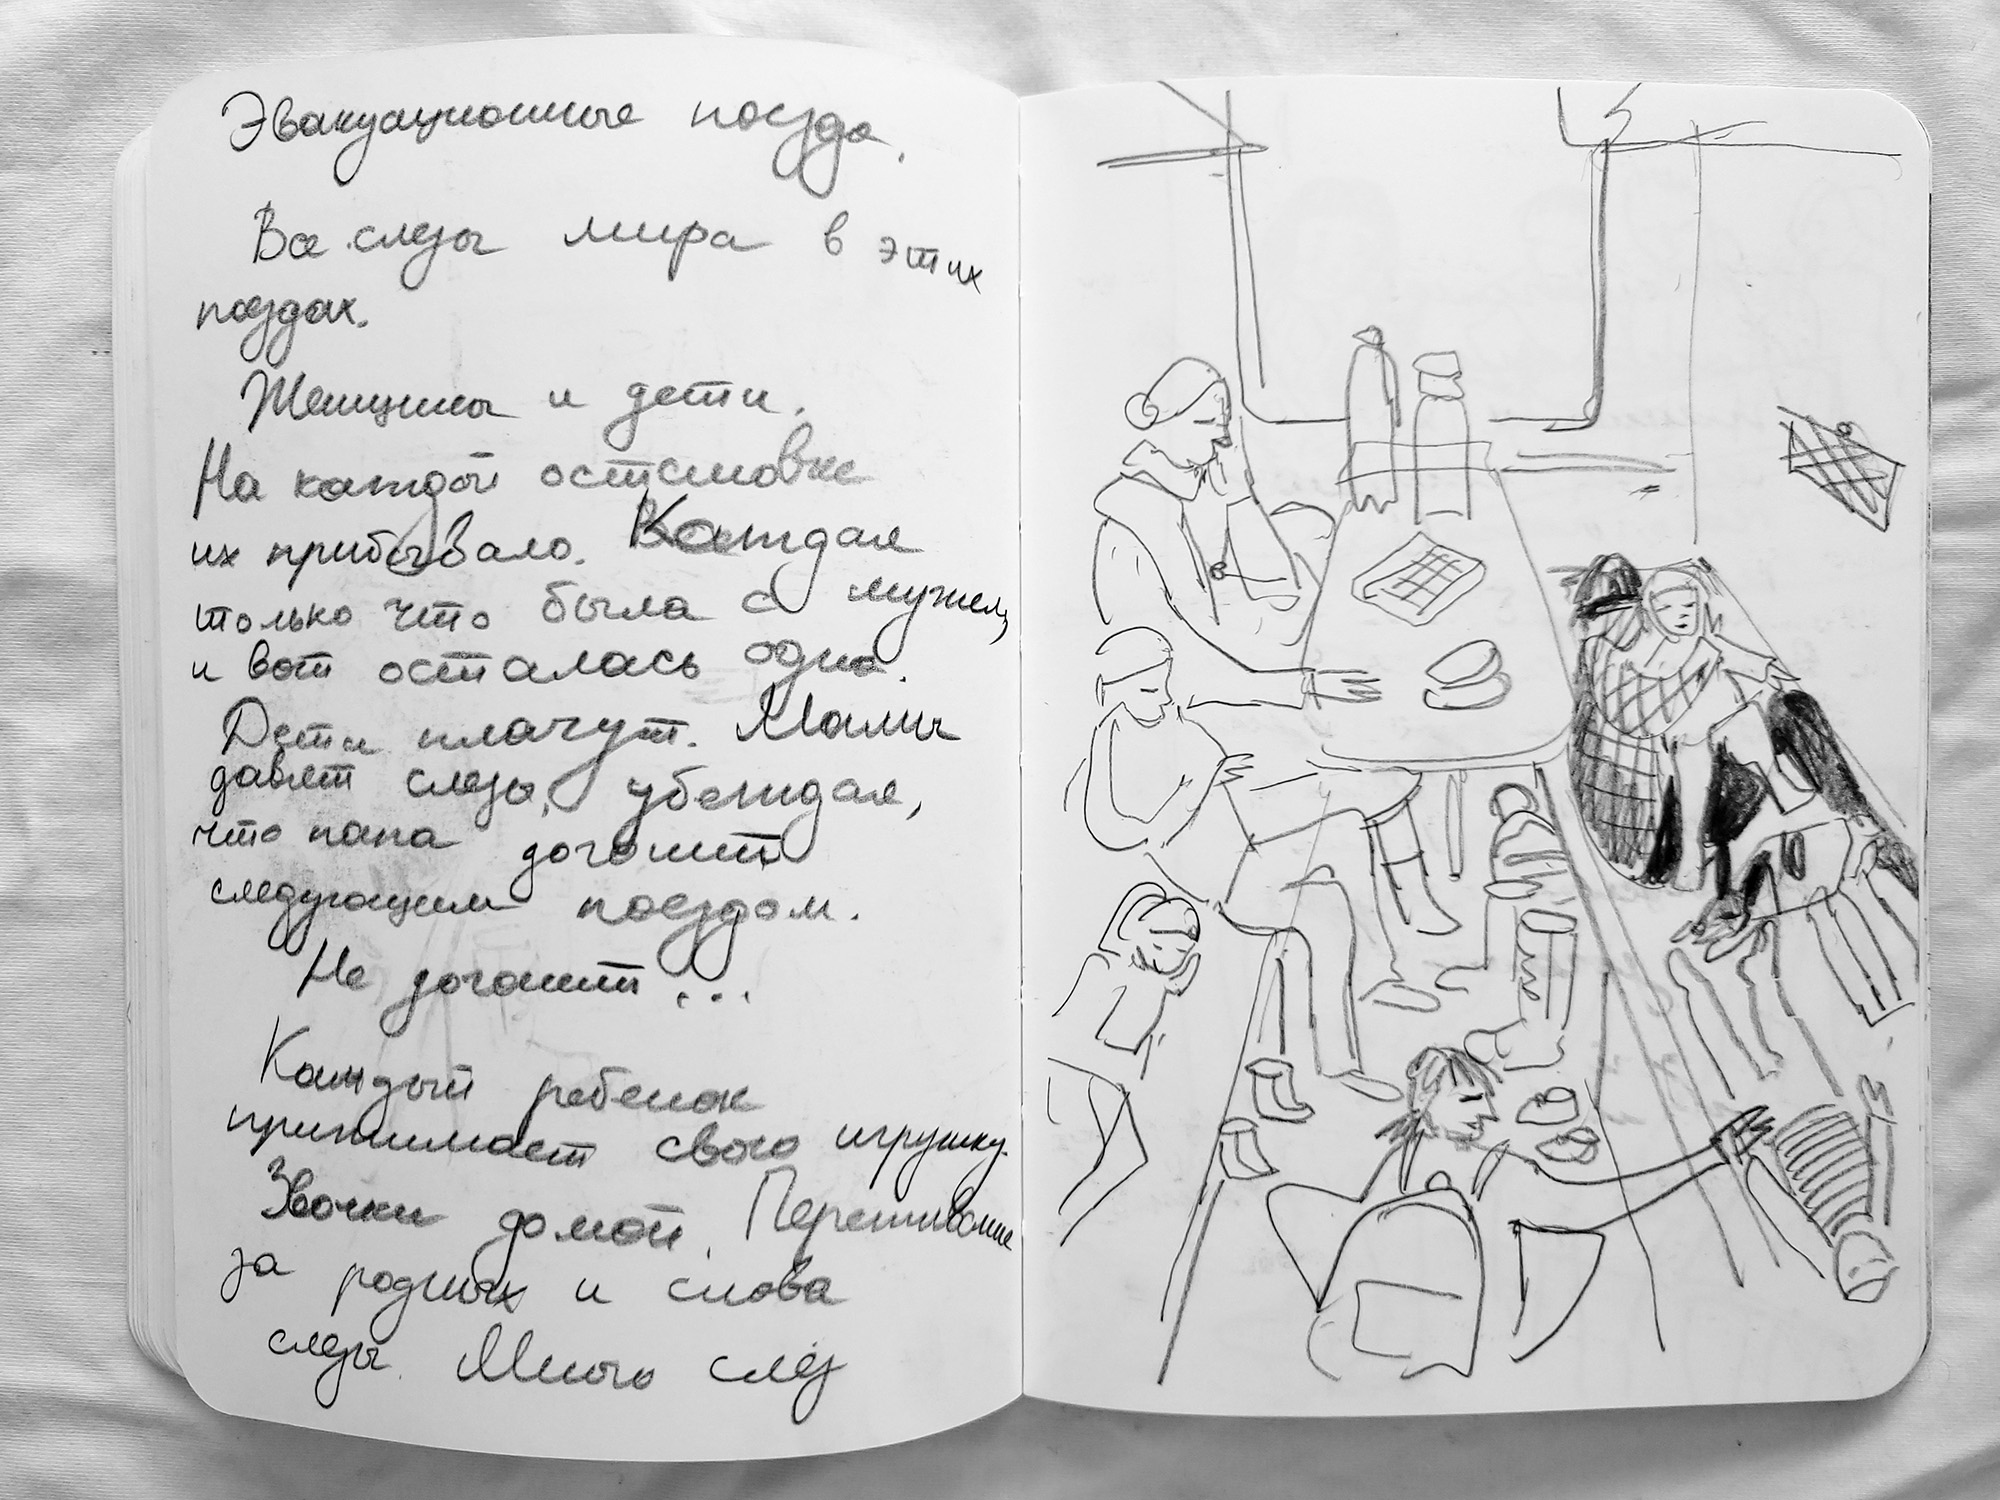 Эвакуационные поезда.
Все слезы мира в этих
поездах.
Женщины и дети.
На каждой остановке
их прибывало. Каждая
только что была с мужем,
и вот осталась одна.
Дети плачут. Мамы
давят слезы, убеждая,
что папа догонит
следующим поездом.
Не догонит...
Каждый ребенок
прижимает свою игрушку.
Звонки домой. Переживание
за родных и снова
слезы. Много слёз